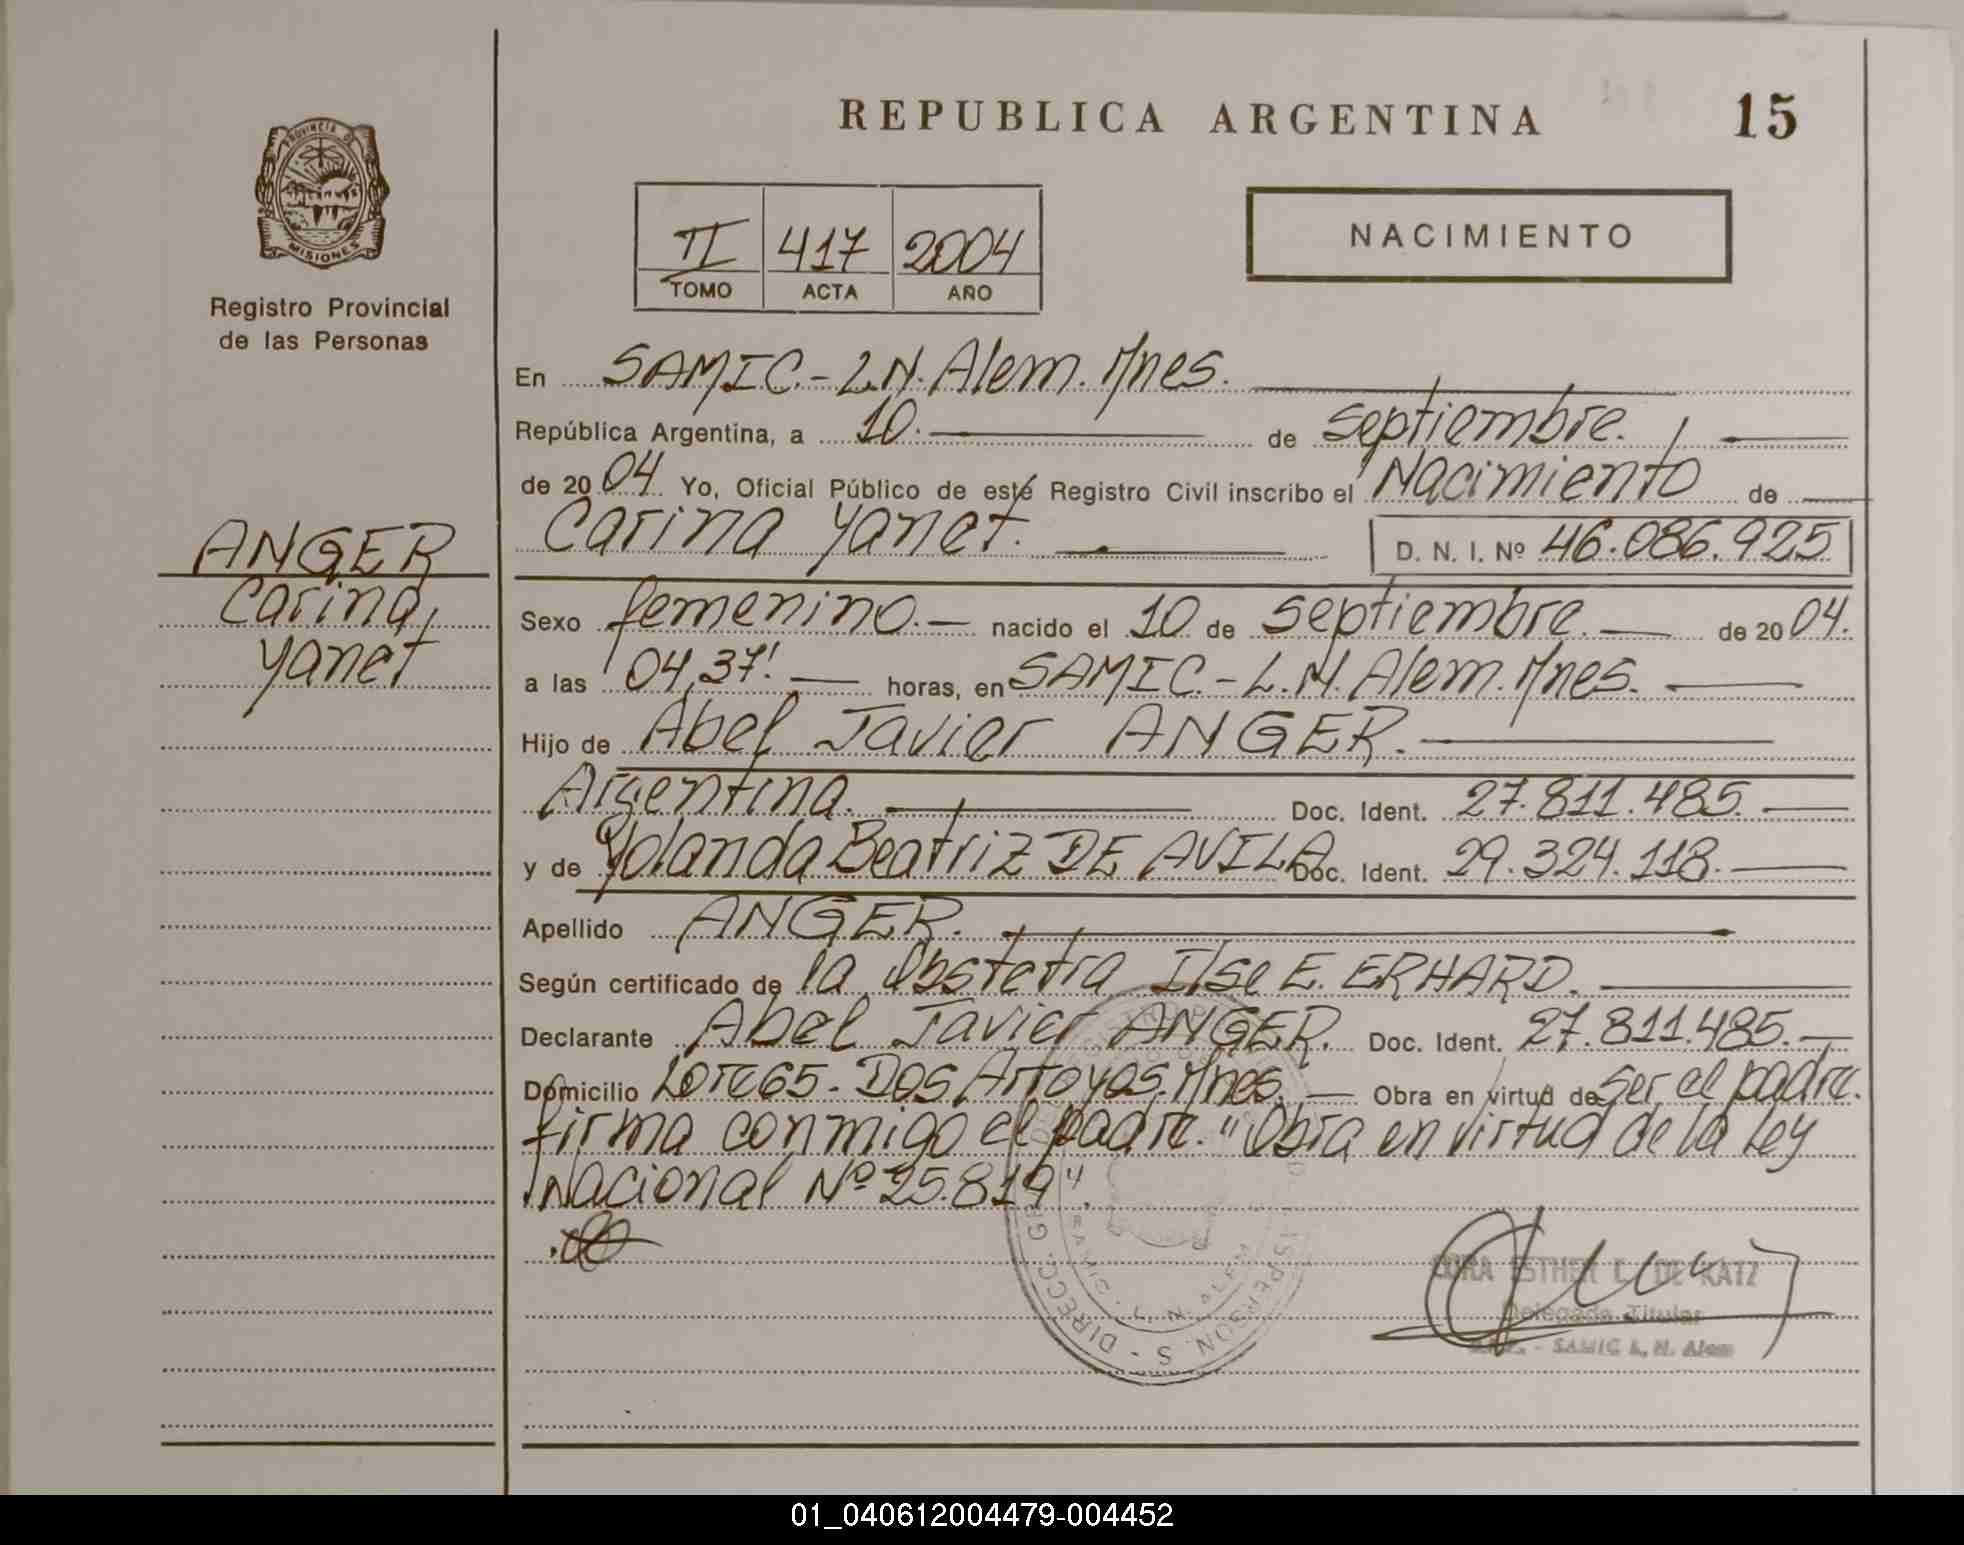 REPUBLICA ARGENTINA 15
PROVINCIA DE
MISIONES
Registro Provincial
de las Personas
II 417 2004
TOMO ACTA AÑO
NACIMIENTO
En SAMIC.- L.N. Alem. Mnes.
República Argentina, a 10. de septiembre.
de 2004 Yo, Oficial Público de este Registro Civil inscribo el Nacimiento de
Carina Yanet. D. N. I. Nº 46.086.925
ANGER
Carina,
Yanet
Sexo femenino. nacido el 10 de septiembre. de 2004.
a las 04,37' horas, en SAMIC.- L.N. Alem. Mnes.
Hijo de Abel Javier ANGER.
Argentina. Doc. Ident. 27.811.485.
y de Yolanda Beatriz DE AVILA Doc. Ident. 29.324.118.
Apellido ANGER.
Según certificado de la Obstetra Ilse E. ERHARD.
Declarante Abel Javier ANGER. Doc. Ident. 27.811.485.
Domicilio Lote 65 - Dos Arroyos. Mnes. Obra en virtud de ser el padre.
firma conmigo el padre. "Obra en virtud de la Ley
Nacional Nº 25.819".
ESTHER DE KATZ
Delegada Titular
- SAMIC L. N. Alem
01_040612004479-004452